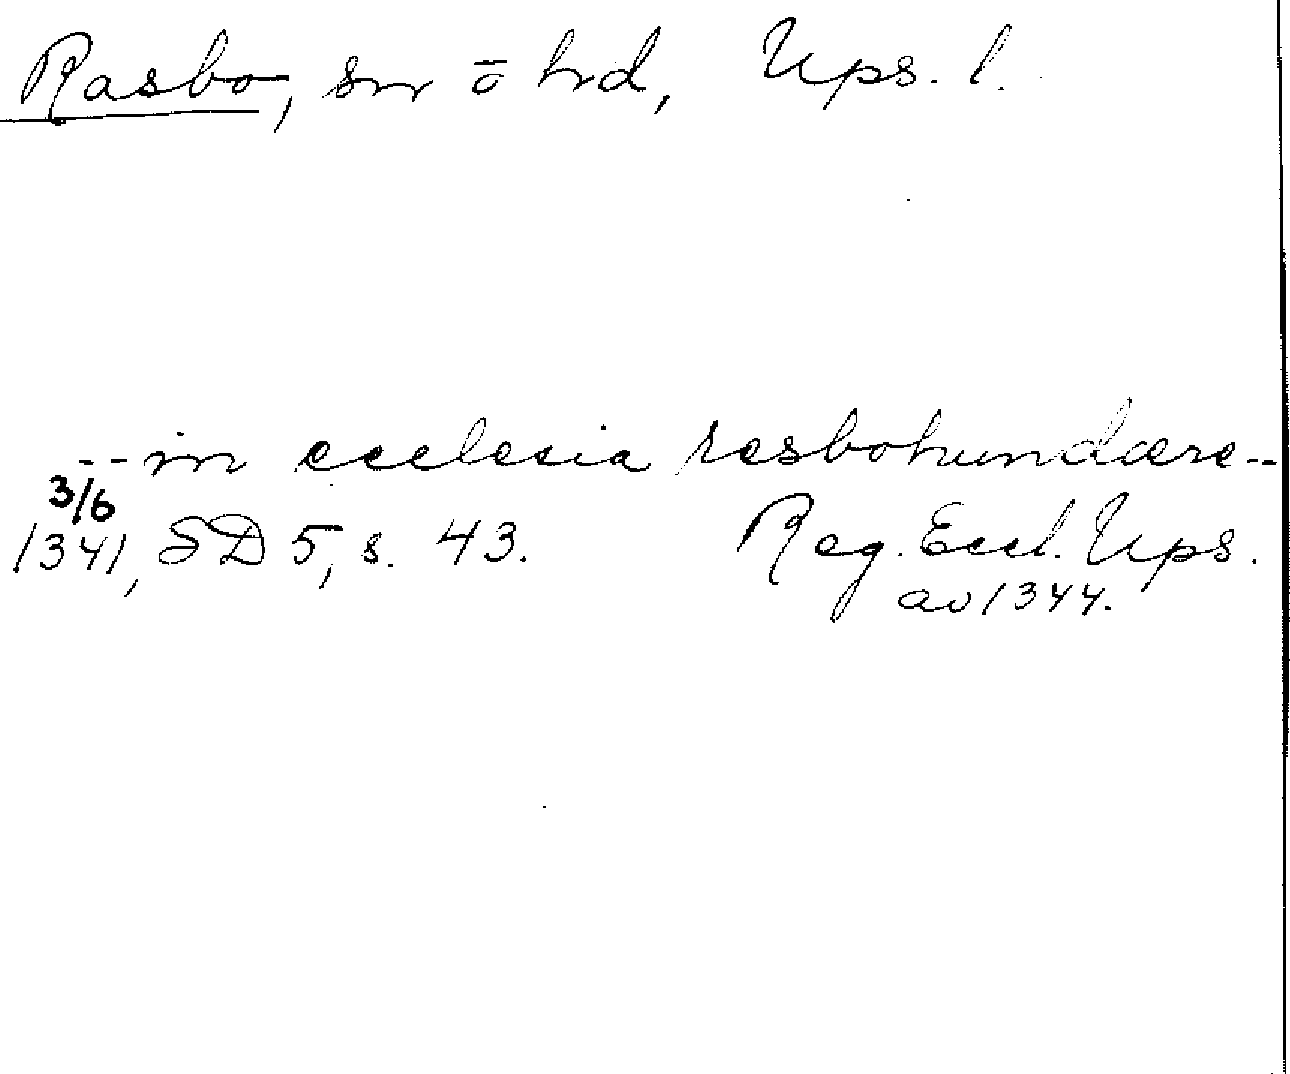 Rasbo, sn ō hd, Ups. l.
-- in ecclesia rasbohundære --
3/6
1341, SD 5, s. 43. Reg. Eccl. Ups.
av 1344.